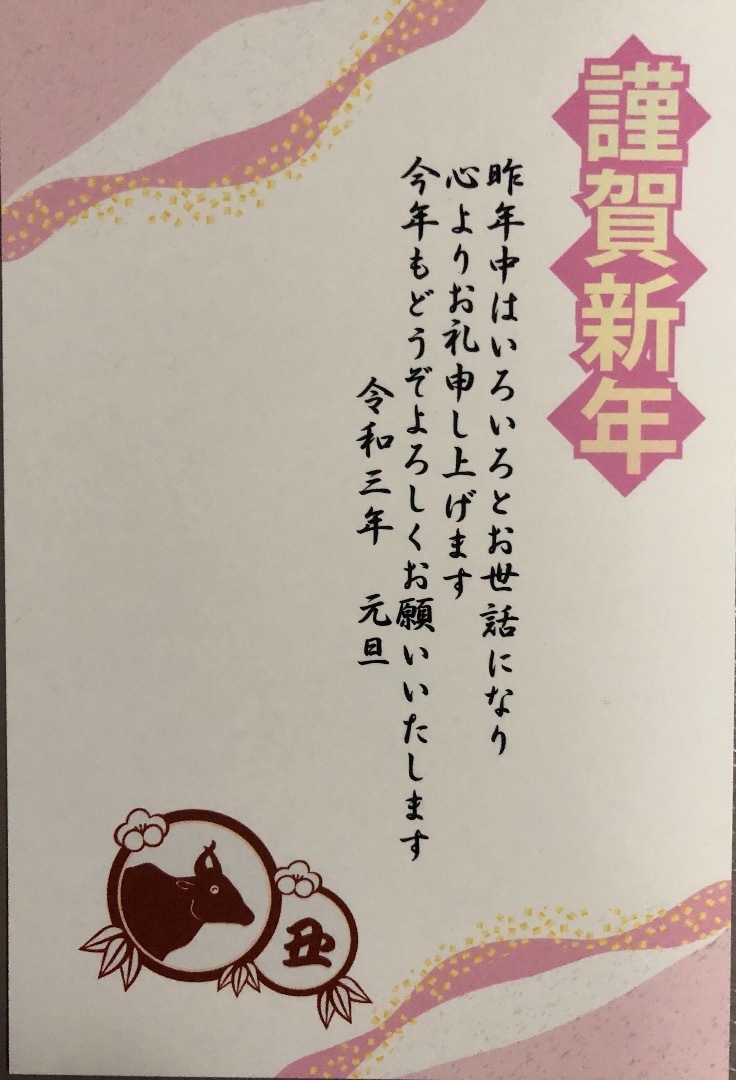 謹賀新年
昨年中はいろいろとお世話になり
心よりお礼申し上げます
今年もどうぞよろしくお願いいたします
令和三年　元旦
丑